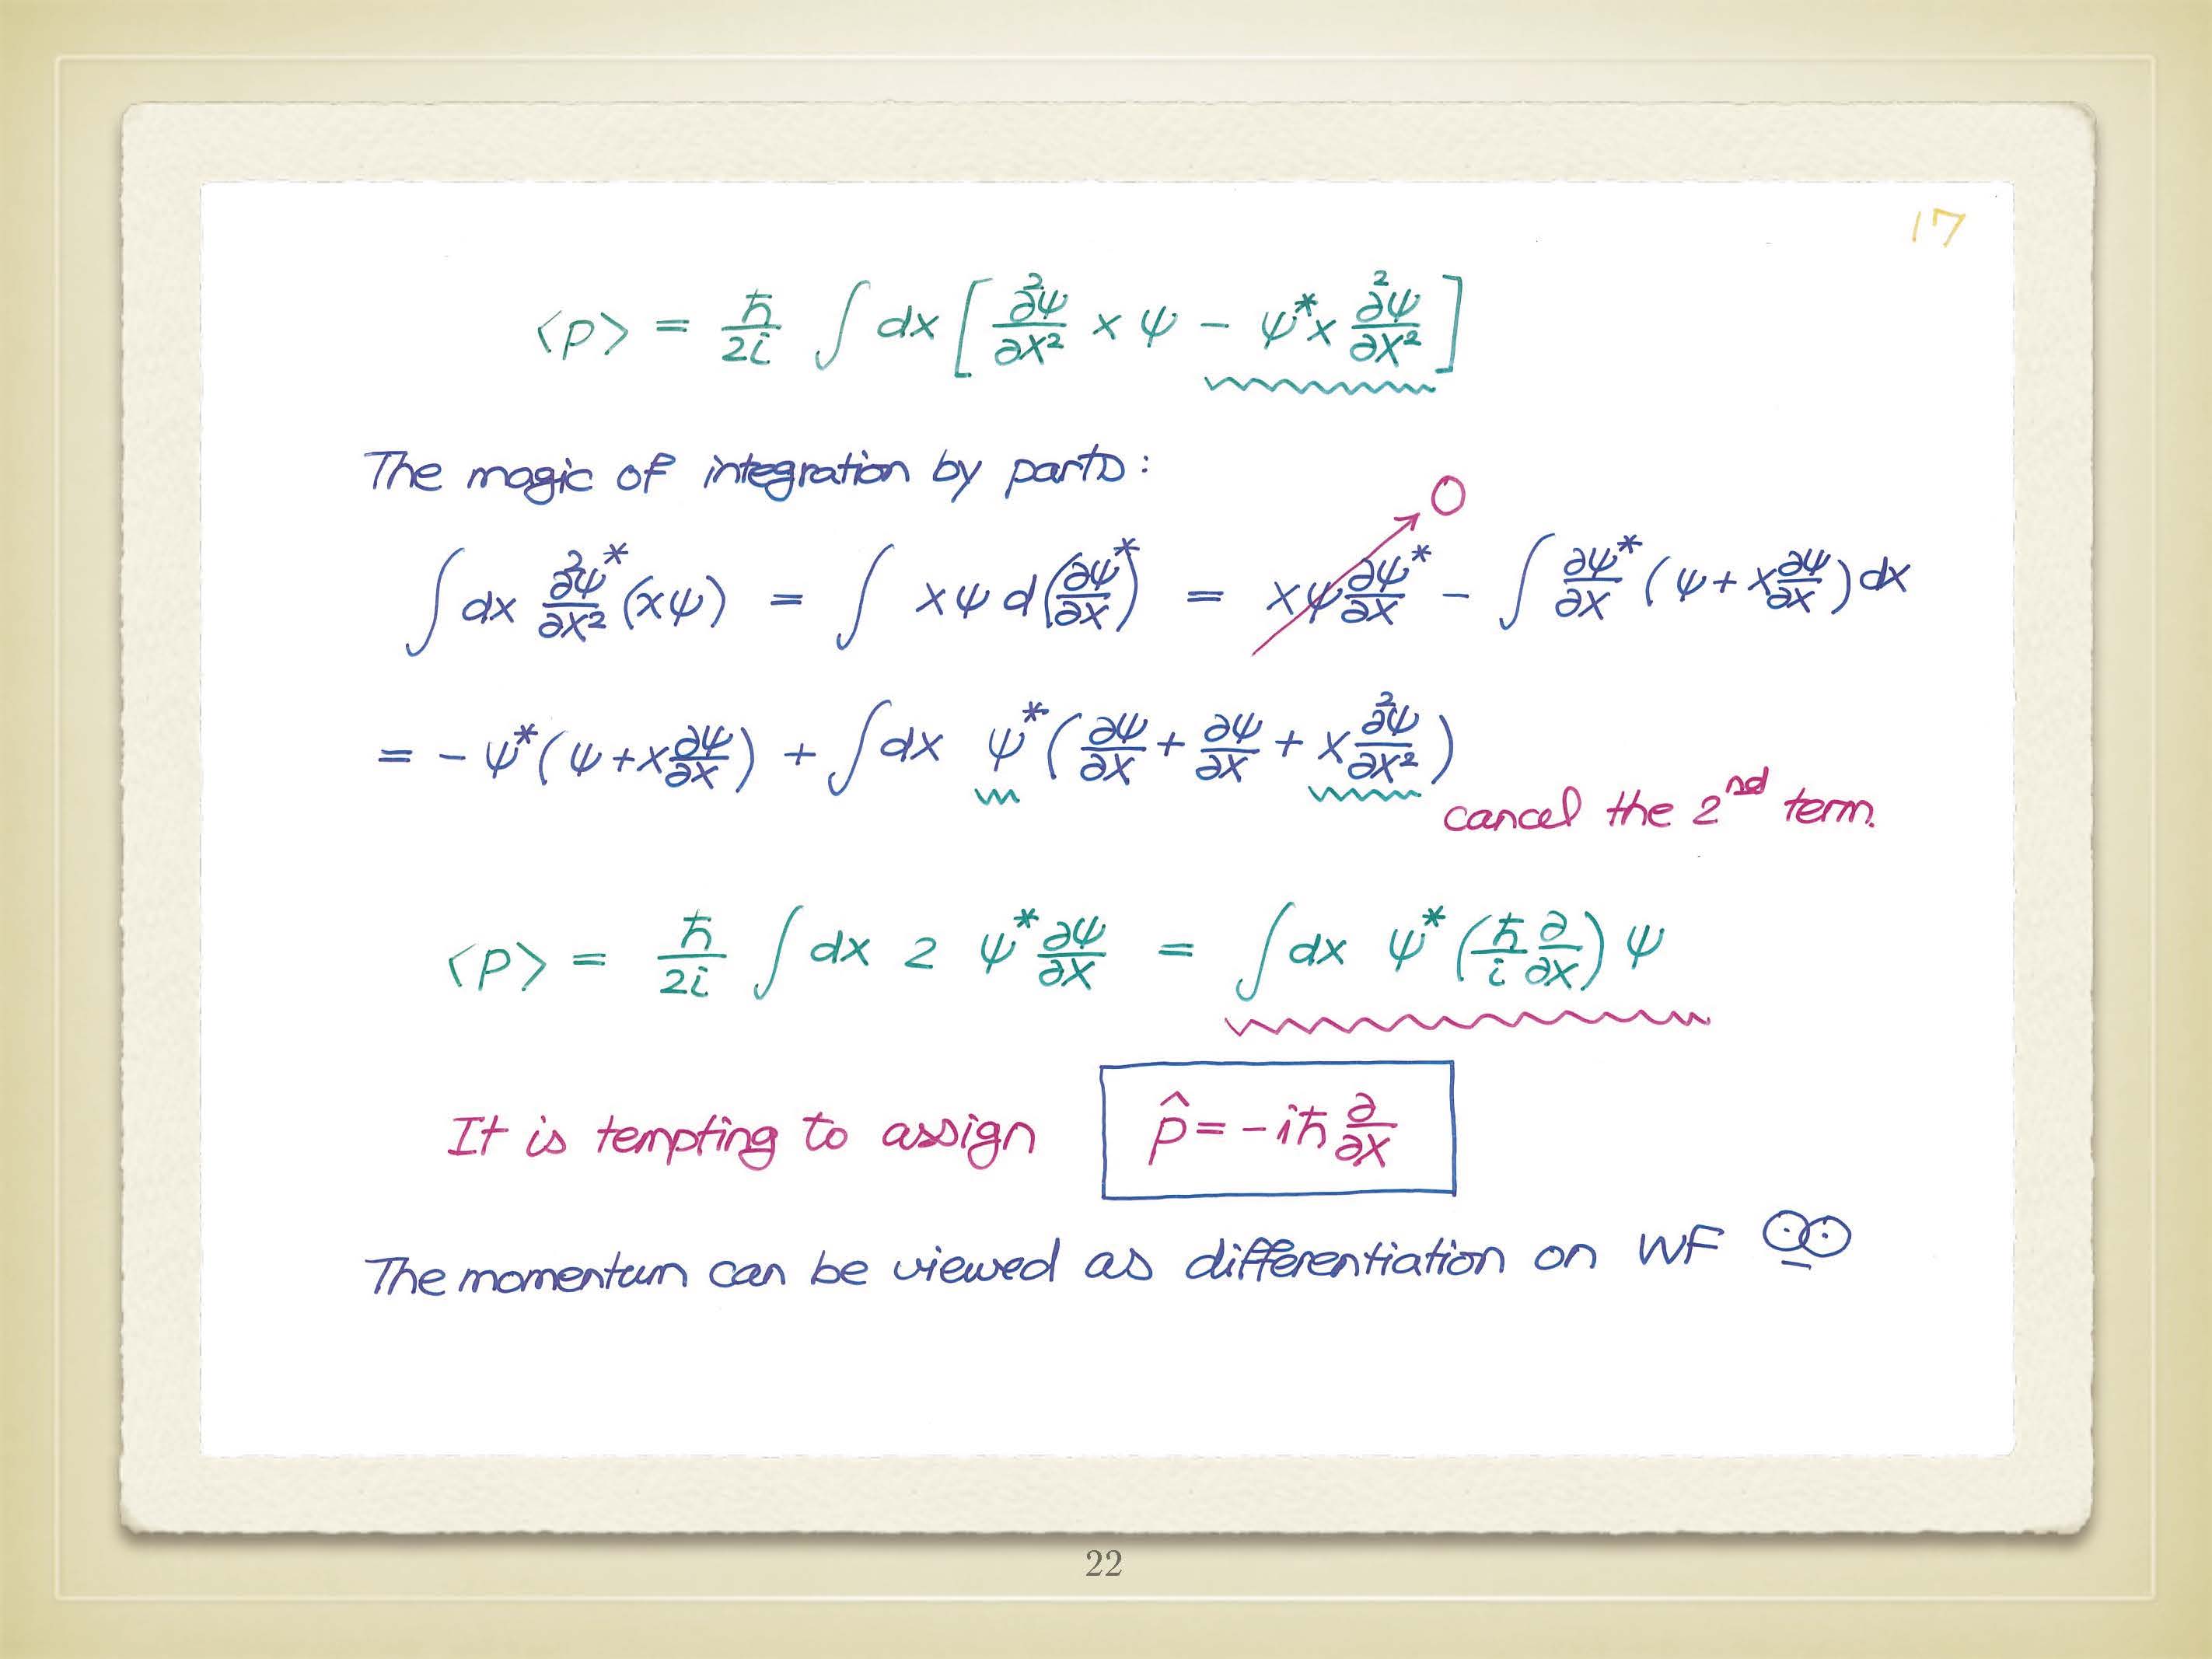 17
⟨p⟩ = ħ/2i ∫ dx [ ∂²ψ/∂x² x ψ − ψ*x ∂²ψ/∂x² ]
The magic of integration by parts:
0
∫ dx ∂²ψ*/∂x² (xψ) = ∫ xψ d(∂ψ*/∂x) = xψ ∂ψ*/∂x − ∫ ∂ψ*/∂x (ψ + x ∂ψ/∂x) dx
= − ψ*(ψ + x ∂ψ/∂x) + ∫ dx ψ* (∂ψ/∂x + ∂ψ/∂x + x ∂²ψ/∂x²)
cancel the 2nd term.
⟨p⟩ = ħ/2i ∫ dx 2 ψ* ∂ψ/∂x = ∫ dx ψ* (ħ/i ∂/∂x) ψ
It is tempting to assign p̂ = −iħ ∂/∂x
The momentum can be viewed as differentiation on WF
22